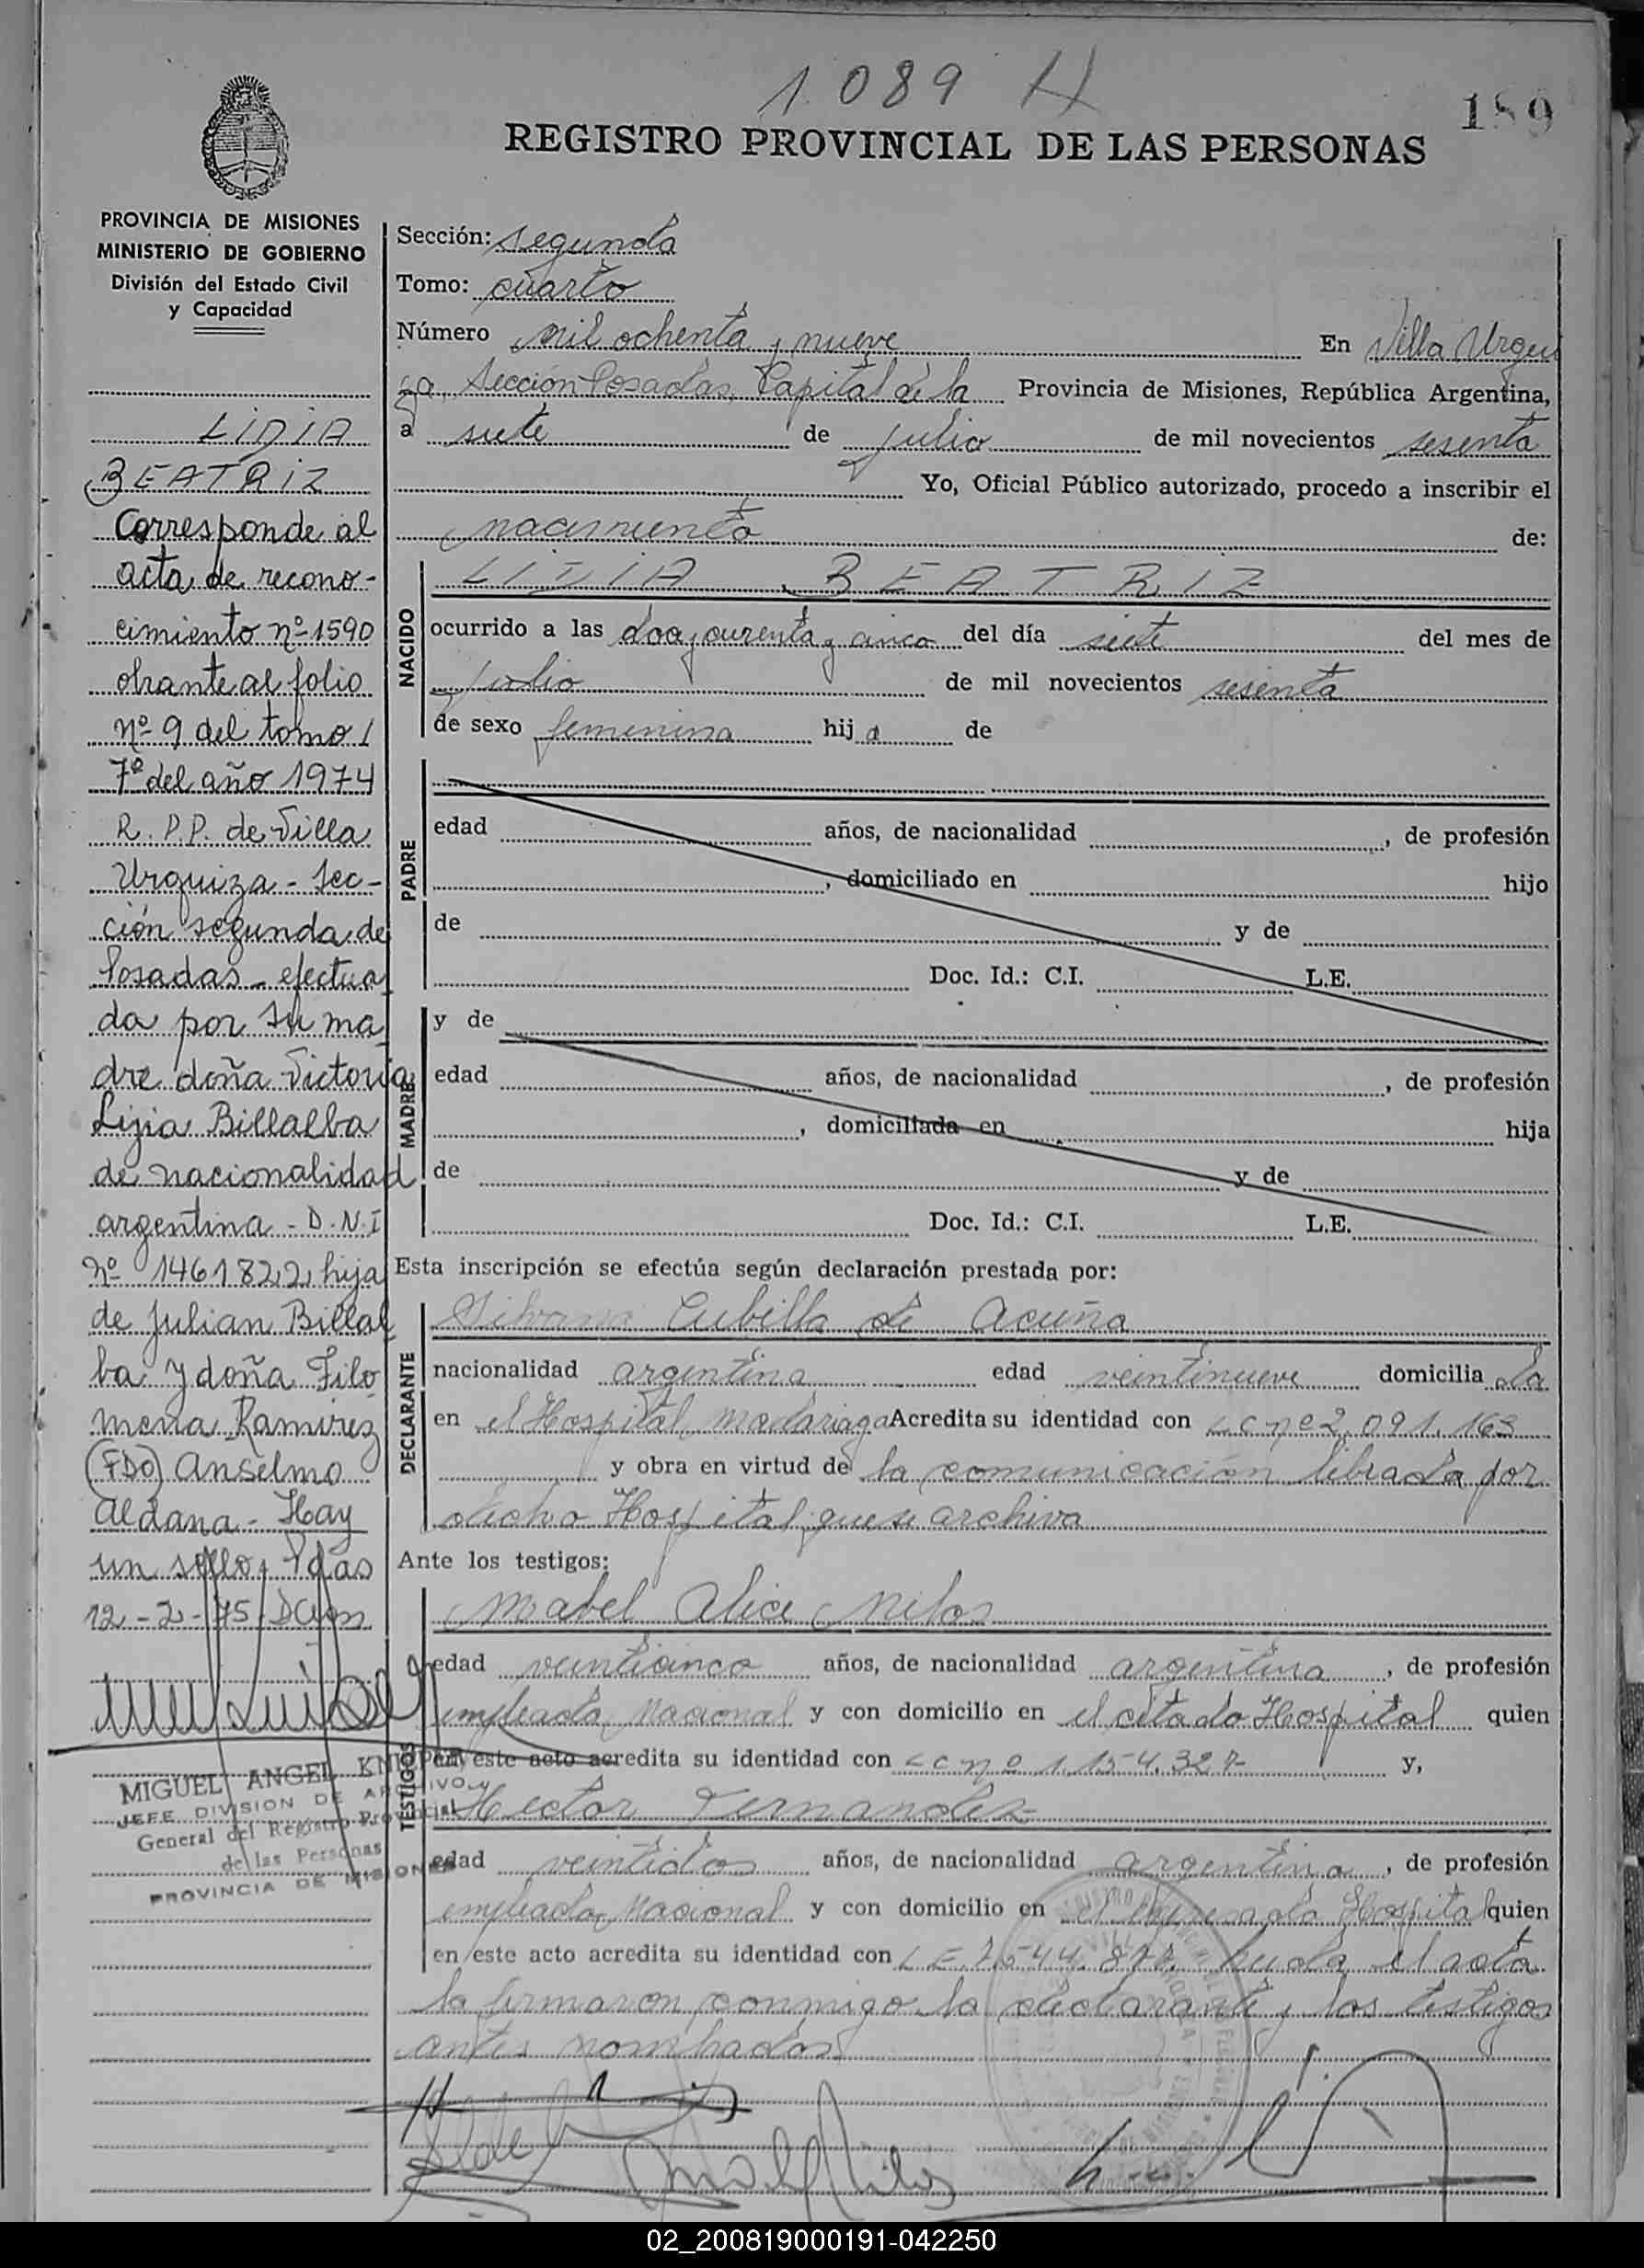 1089 H
189
REGISTRO PROVINCIAL DE LAS PERSONAS
PROVINCIA DE MISIONES
MINISTERIO DE GOBIERNO
División del Estado Civil
y Capacidad
LIDIA
BEATRIZ
Corresponde al
acta de recono-
cimiento nº 1590
obrante al folio
nº 9 del tomo /
7º del año 1974
R. P. P. de Villa
Urquiza - Sec-
ción segunda de
Posadas - efectua
da por su ma
dre doña Victoria
Ligia Billalba
de nacionalidad
argentina - D.N.I
nº 1461822, hija
de Julian Billal
ba y doña Filo
mena Ramirez
(FDO) Anselmo
Aldana - Hay
un sello, Pdas
12-2-75
MIGUEL ANGEL
JEFE DIVISION DE ARCHIVO y
General del Registro Provincial
de las Personas
PROVINCIA DE MISIONES
Sección: segunda
Tomo: cuarto
Número mil ochenta y nueve En Villa Urqui
za, Sección Posadas, Capital de la Provincia de Misiones, República Argentina,
a siete de julio de mil novecientos sesenta
Yo, Oficial Público autorizado, procedo a inscribir el
nacimiento de:
NACIDO
LIDIA BEATRIZ
ocurrido a las doce y cuarenta y cinco del día siete del mes de
julio de mil novecientos sesenta
de sexo femenina hija de
PADRE
edad años, de nacionalidad , de profesión
, domiciliado en hijo
de y de
Doc. Id.: C.I. L.E.
MADRE
y de
edad años, de nacionalidad , de profesión
, domiciliada en hija
de y de
Doc. Id.: C.I. L.E.
Esta inscripción se efectúa según declaración prestada por:
DECLARANTE
Cubilla de Acuña
nacionalidad argentina edad veintinueve domicilia da
en el Hospital Madariaga Acredita su identidad con L c nº 2.091.163
y obra en virtud de la comunicación librada por
dicho Hospital que se archiva
Ante los testigos:
TESTIGOS
Mabel Alice Milos
edad veinticinco años, de nacionalidad argentina, de profesión
empleada Nacional y con domicilio en el citado Hospital quien
en este acto acredita su identidad con L c nº 1.154.327 y,
Hector Fernandez
edad veintidos años, de nacionalidad argentina, de profesión
empleado Nacional y con domicilio en el Hospital quien
en este acto acredita su identidad con L E 7.544.877. Leida el acta
la firmaron conmigo la declarante y los testigos
antes nombrados
02_200819000191-042250